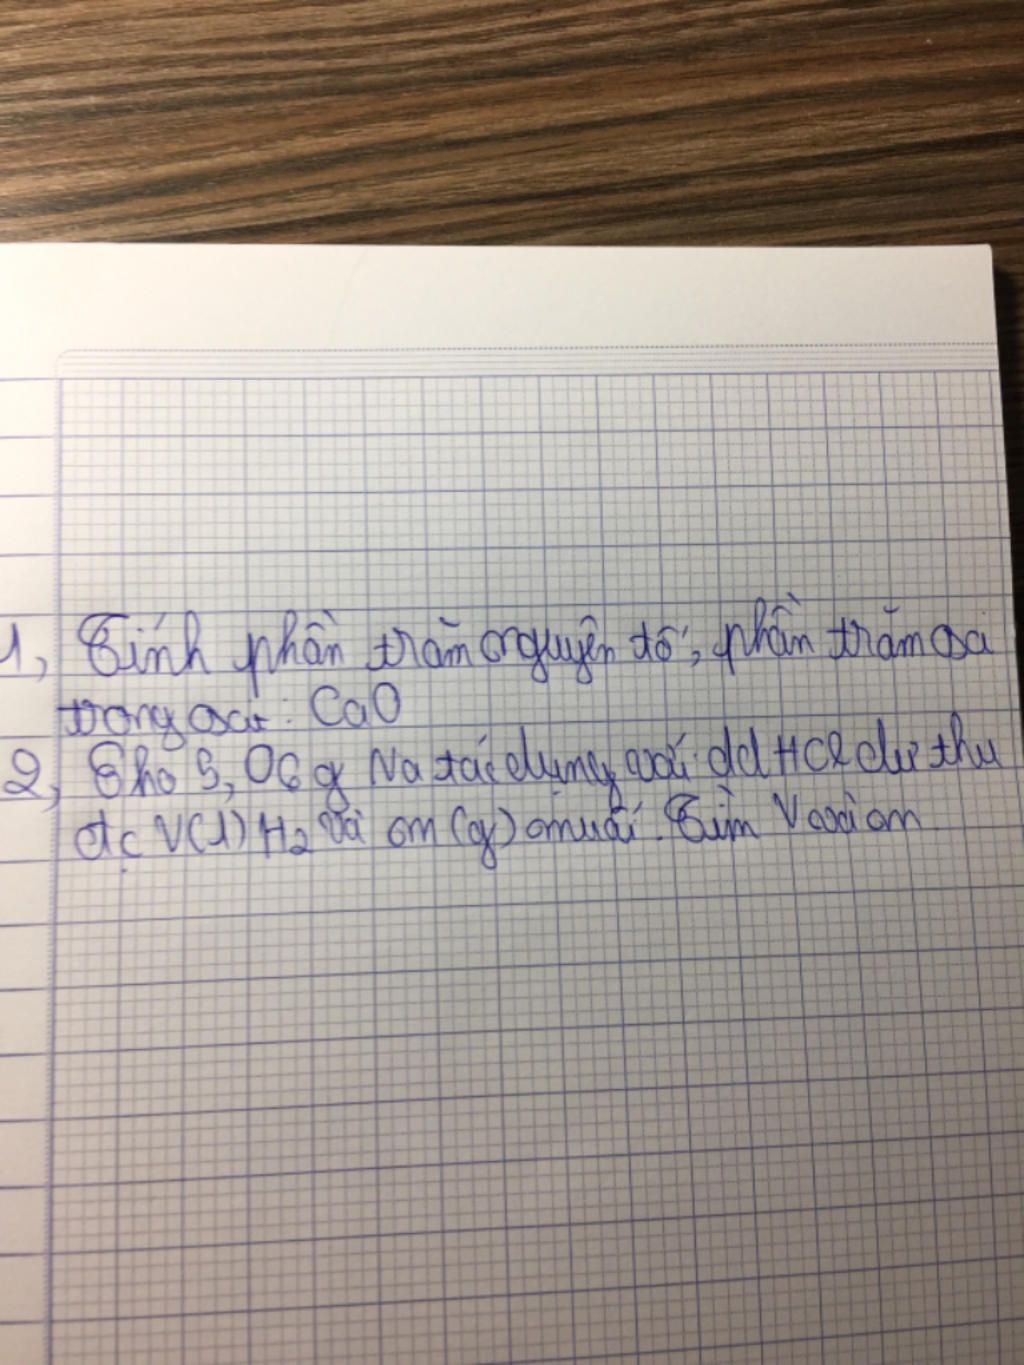 1, Tính phần trăm nguyên tố, phần trăm oxi
trong oxit: CaO
2, Cho 5,06g Na tác dụng với dd HCl dư thu
đc V(l) H2 và m (g) muối. Tìm V và m